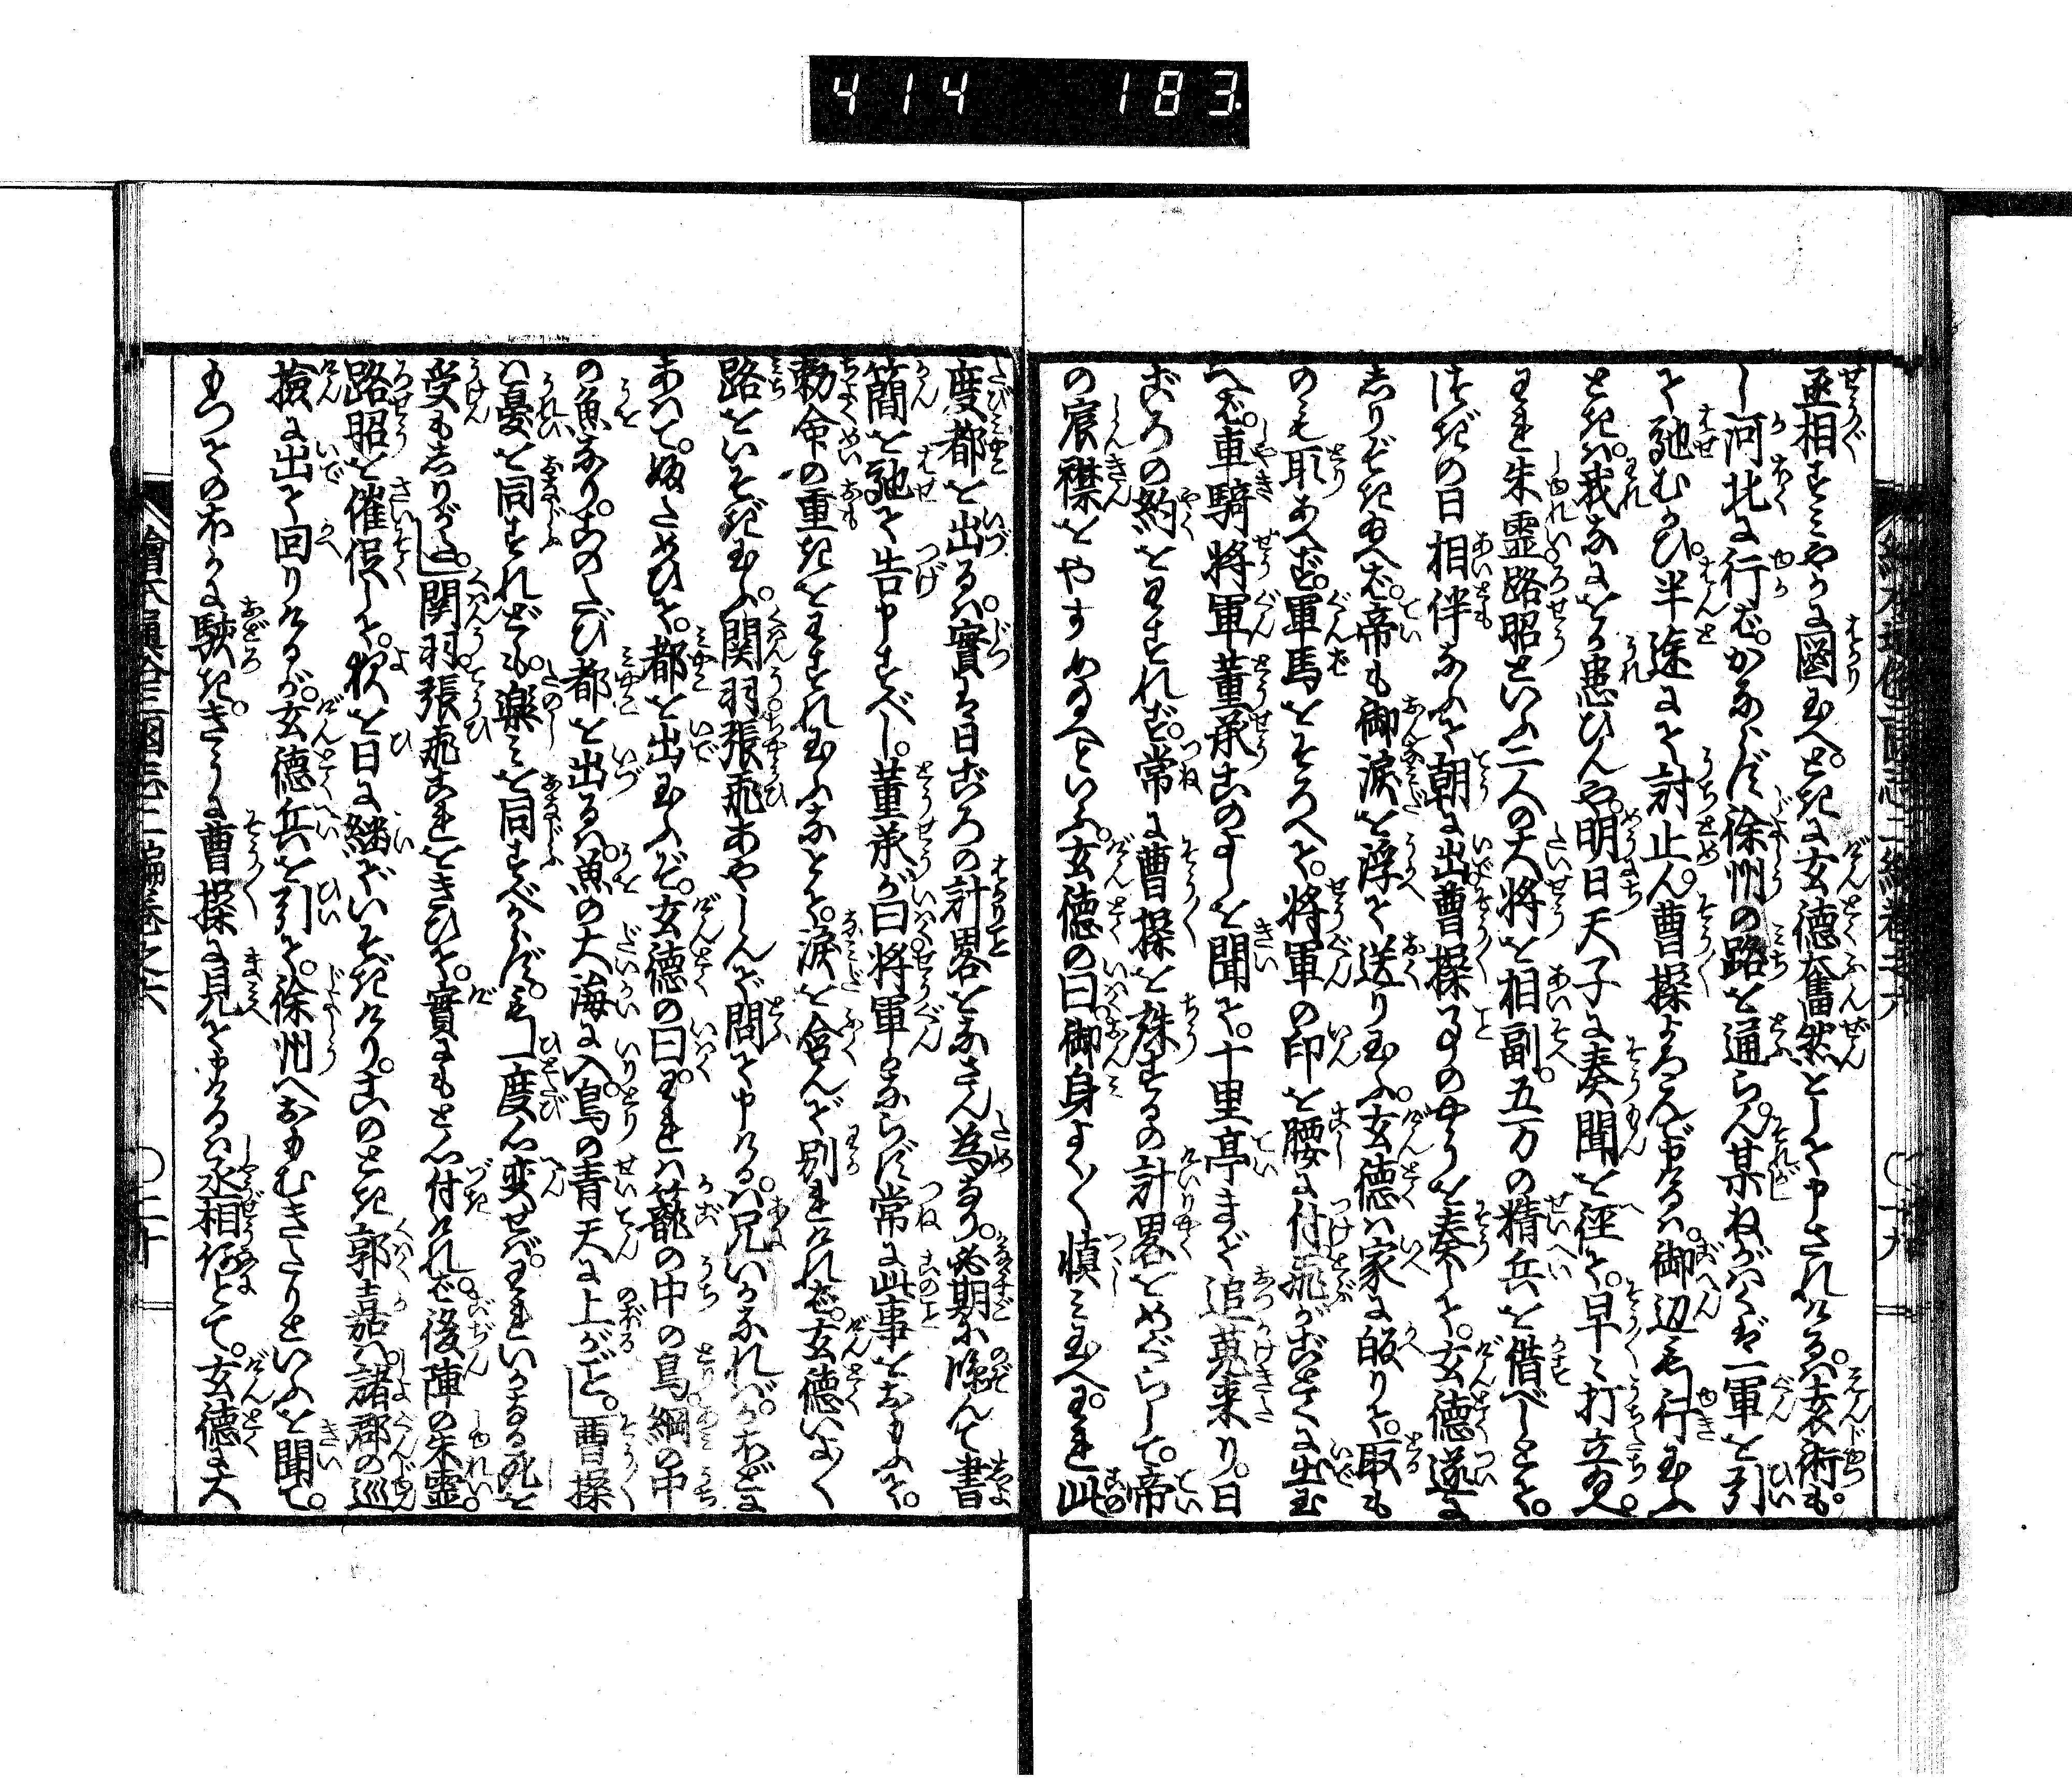 414 183
丞相すみやかに図玉へ。ときに玄徳奮然として申されけるハ。袁術も
し河北に行バ。かならず徐州の路を通らん。某ねがハくバ一軍を引
て馳むかひ。半途にて討止ん。曹操よろこんで申けるハ。御辺もし行玉ふ
ときハ。我なにをか患ひんや。明日天子に奏聞を経て。早々打立玉へ。
われ朱霊路昭といふ二人の大将を相副。五万の精兵を借べしとて。
つぎの日相伴なふて朝に出曹操事のやうを奏して。玄徳遂に
しりぞき玉へバ。帝も御涙を浮て送り玉ふ。玄徳ハ家に皈りて。取も
のも取あへず。軍馬をそろへて。将軍の印を腰に付飛がごとくに出玉
へバ。車騎将軍董承このよしを聞て。十里亭まで追蒐来り。日
ごろの約をわすれず。常に曹操を殊するの計畧をめぐらして。帝
の宸襟をやすめ玉へといふ。玄徳の曰。御身よく〳〵慎み玉へ。われ此
度都を出るハ。實ハ日ごろの計畧をなさん為なり。必期に臨んで書
簡を馳て告申すべし。董承が曰将軍かならず常に此事をおもふて。
勅命の重きをわすれ玉ふなとて。涙を含んで別れければ。玄徳いよ〳〵
路をいそぎ玉ふ。関羽張飛あやしんで問て申けるハ。兄いかなれバかほどに
あハて。ふためひて。都を出玉ふぞ。玄徳の曰。われハ籠の中の鳥網の中
の魚なり。このたび都を出るハ。魚の大海に入。鳥の青天に上がごとし。曹操
ハ憂を同すれども。楽みを同すべからず。もし一度心変せバ。われいかなる死を
受もしりがたし。関羽張飛これをきひて。實にもと心付ければ。後陣の朱霊
路昭を催促して。夜を日に継でいそぎけり。このとき郭嘉ハ。諸郡の巡
撿に出て回りけるが。玄徳兵を引て。徐州へおもむきたりといふを聞て。
もつてのほかに駭き。きうに曹操に見て申けるハ丞相何とて。玄徳に大
繪本通俗三國志二編巻之六
○二十